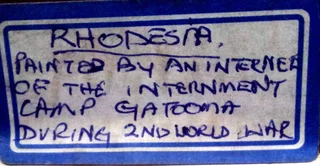 RHODESIA.
PAINTED BY AN INTERNEE
OF THE INTERNMENT
CAMP GATOOMA
DURING 2ND WORLD WAR